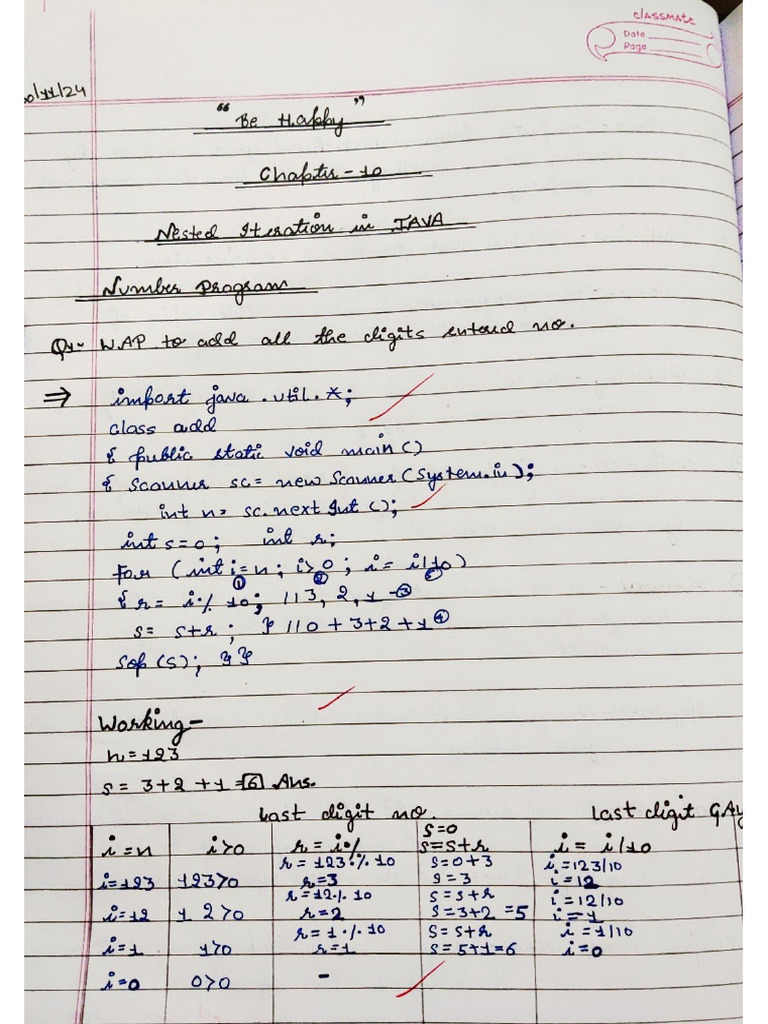 classmate
Date
Page
/11/24
"Be Happy"
Chapter - 10
Nested Iteration in JAVA
Number Program
Q1- WAP to add all the digits entered no.
⇒ import java.util.*;
class add
{ public static void main()
{ Scanner sc = new Scanner(System.in);
int n = sc.next Int();
int s=0; int r;
for (int i=n; i>0; i= i/10)
① ② ⑤
{ r= i% 10; //3, 2, 1 -③
s= s+r; } //0+3+2+1④
sop(s); }}
Working-
n=123
s= 3+2+1=6 Ans.
Last digit no. Last digit GAy
i=n i>0 r=i% s=0 s=s+r i= i/10
i=123 123>0 r=123% 10 r=3 s=0+3 s=3 i=123/10 i=12
i=12 12>0 r=12% 10 r=2 s=s+r s=3+2=5 i=12/10 i=1
i=1 1>0 r=1% 10 r=1 s=s+r s=5+1=6 i=1/10 i=0
i=0 0>0 -